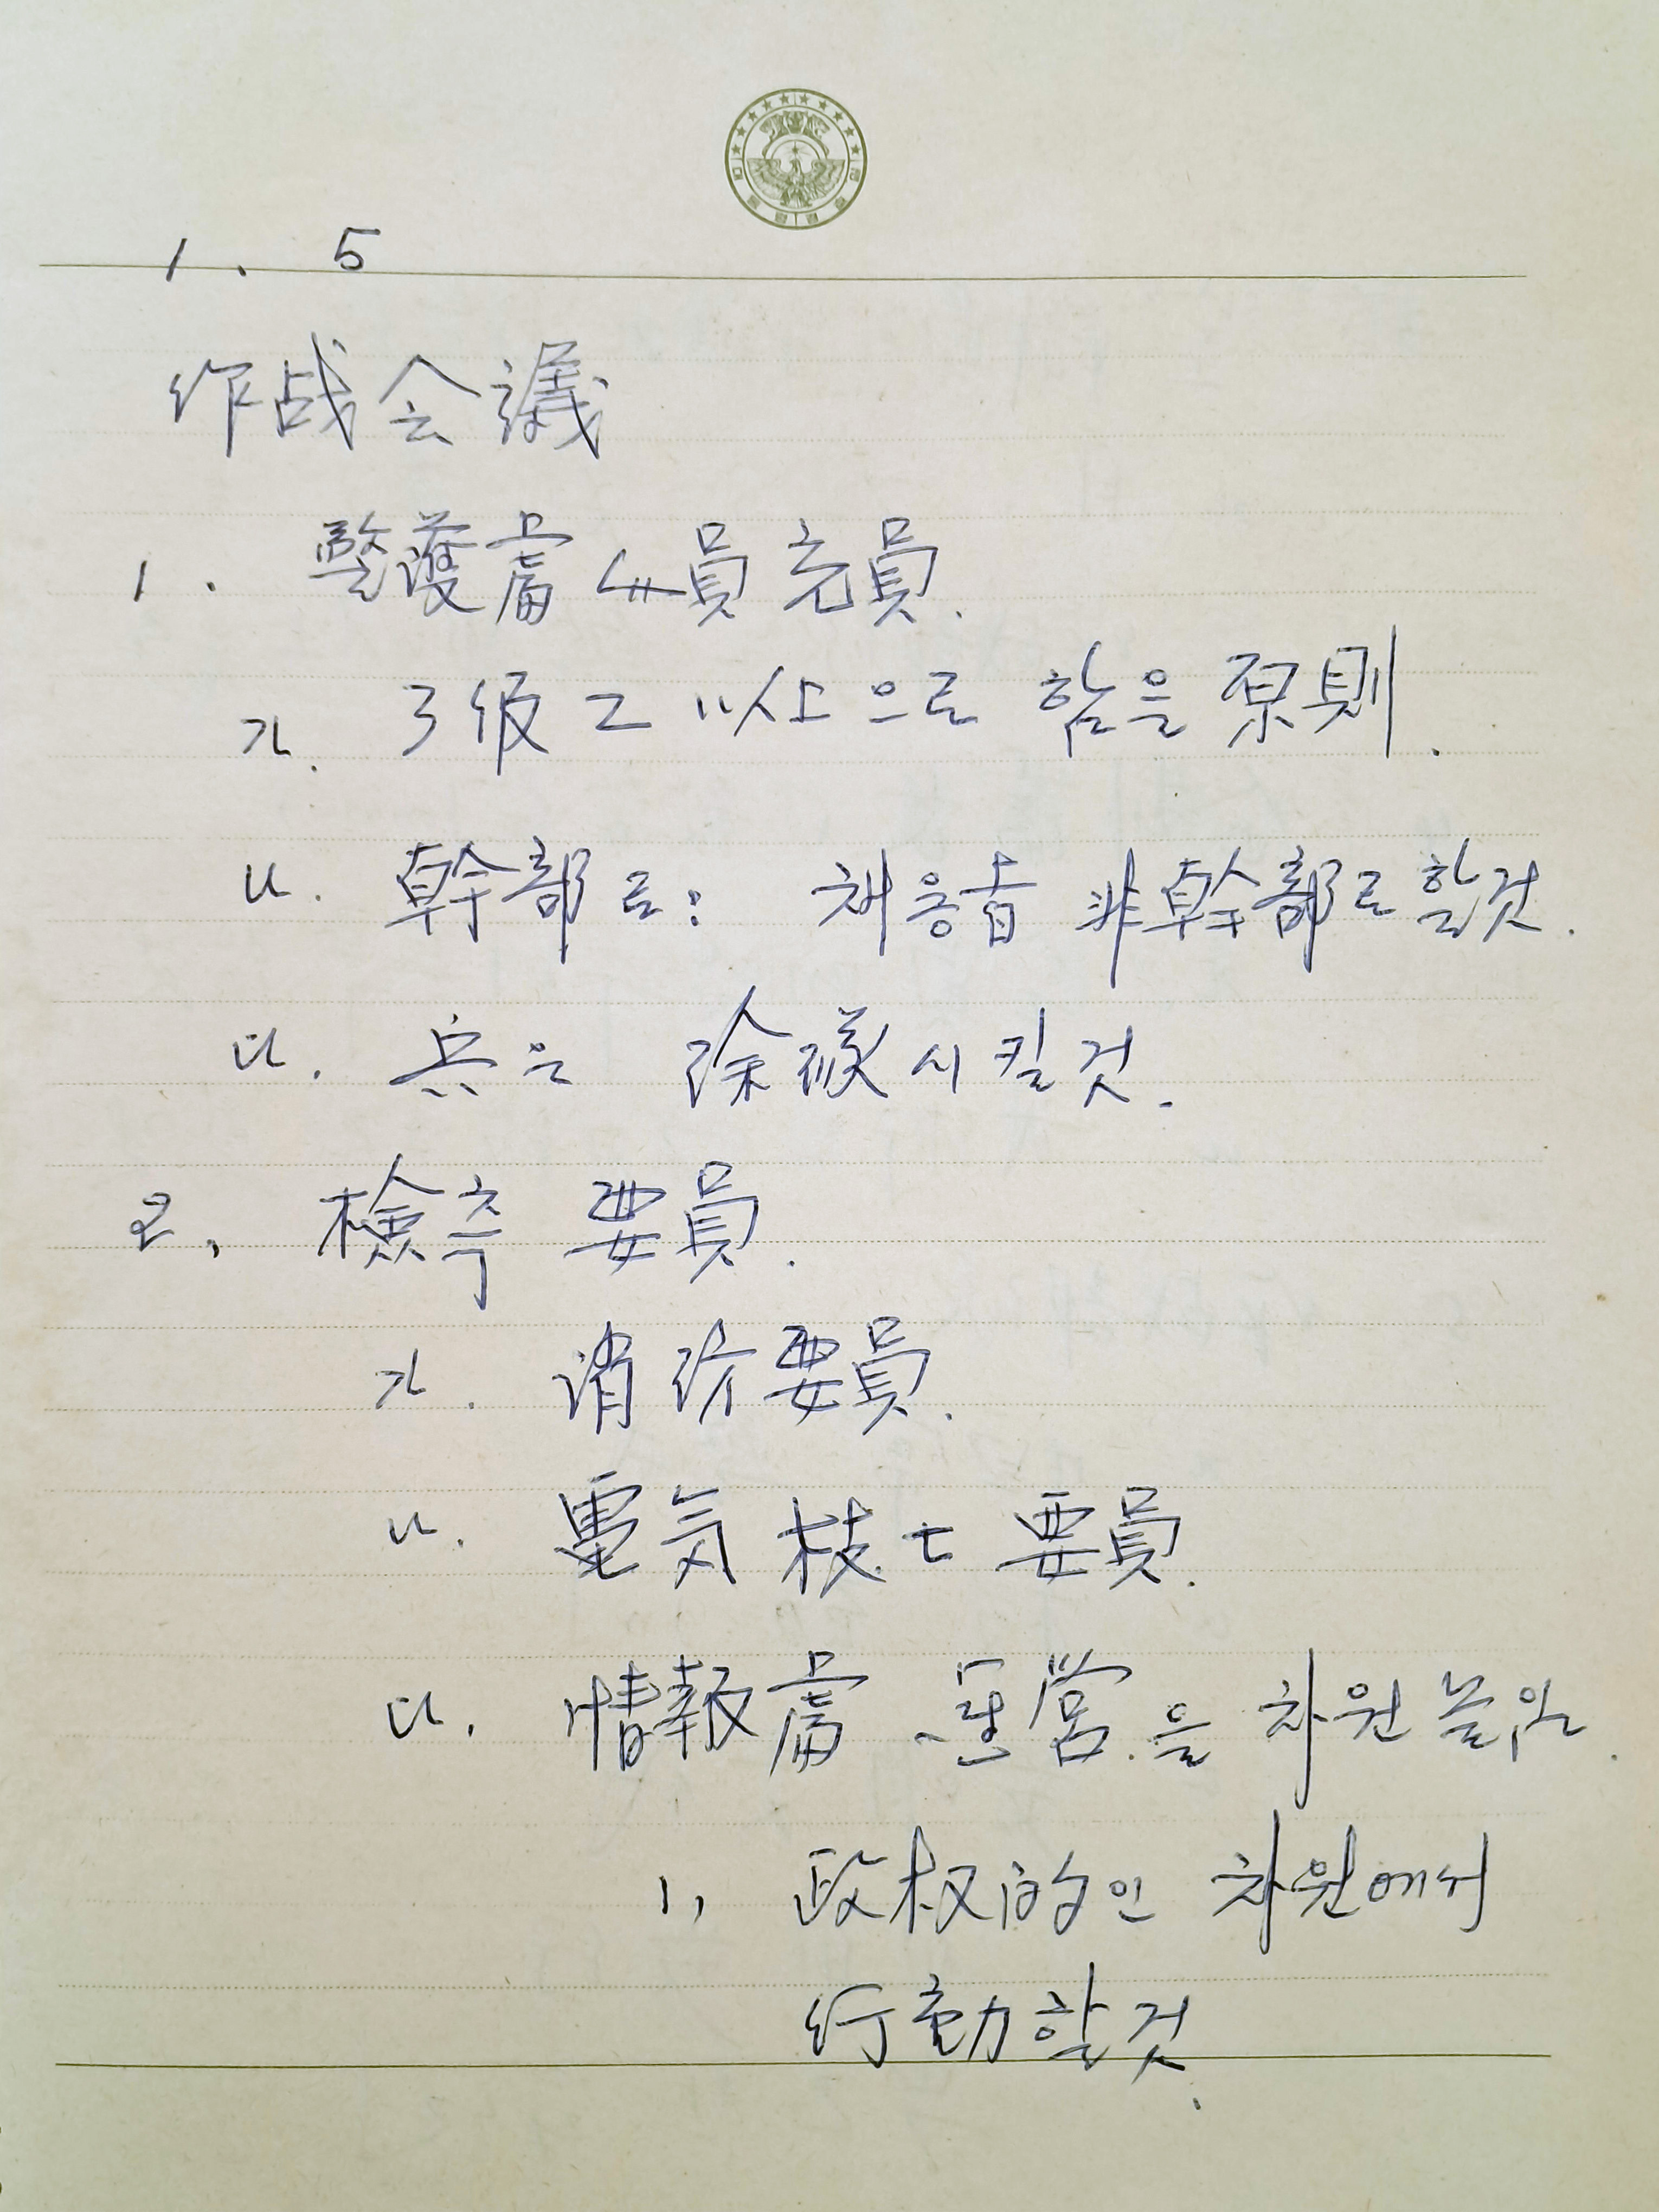 1. 5
作战会議
1. 警護處 要員 充員.
가. 3級 乙 以上으로 함을 原則.
나. 幹部로: 채용時 非幹部로 할것.
다. 兵은 除隊시킬것.
2. 檢측 要員.
가. 消防要員.
나. 電気 技士 要員.
다. 情報處 運営을 차원 높일.
1, 政权的인 차원에서
行動할것.